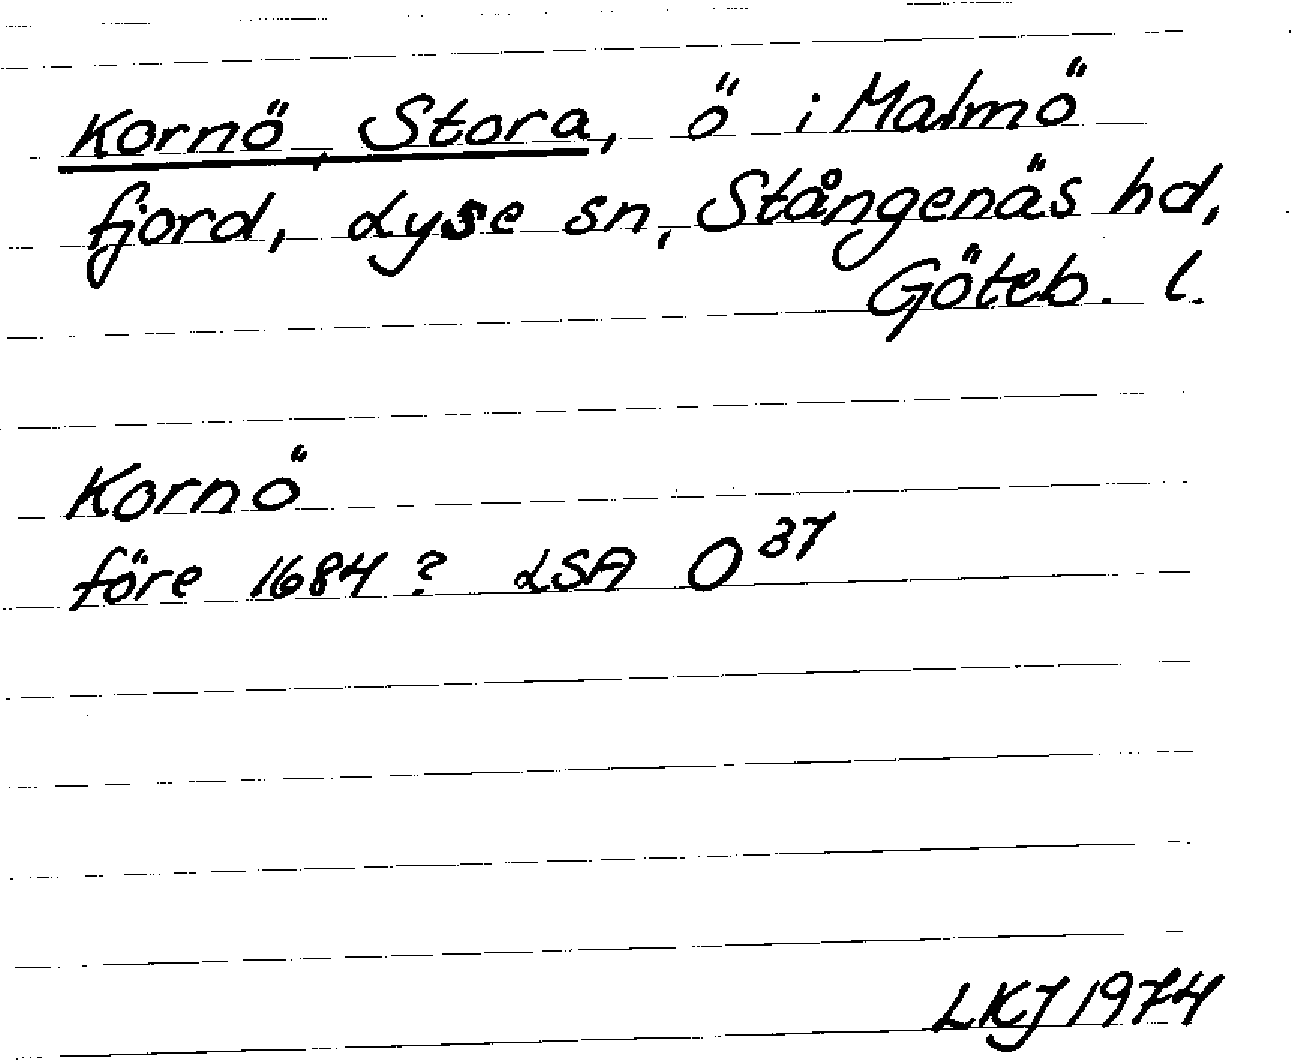 Kornö, Stora, ö i Malmö
fjord, Lyse sn, Stångenäs hd,
Göteb. l.
Kornö
före 1684? LSA O 37
LKJ 1974